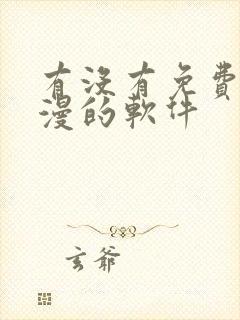 有没有免费
漫的軟件
玄爺